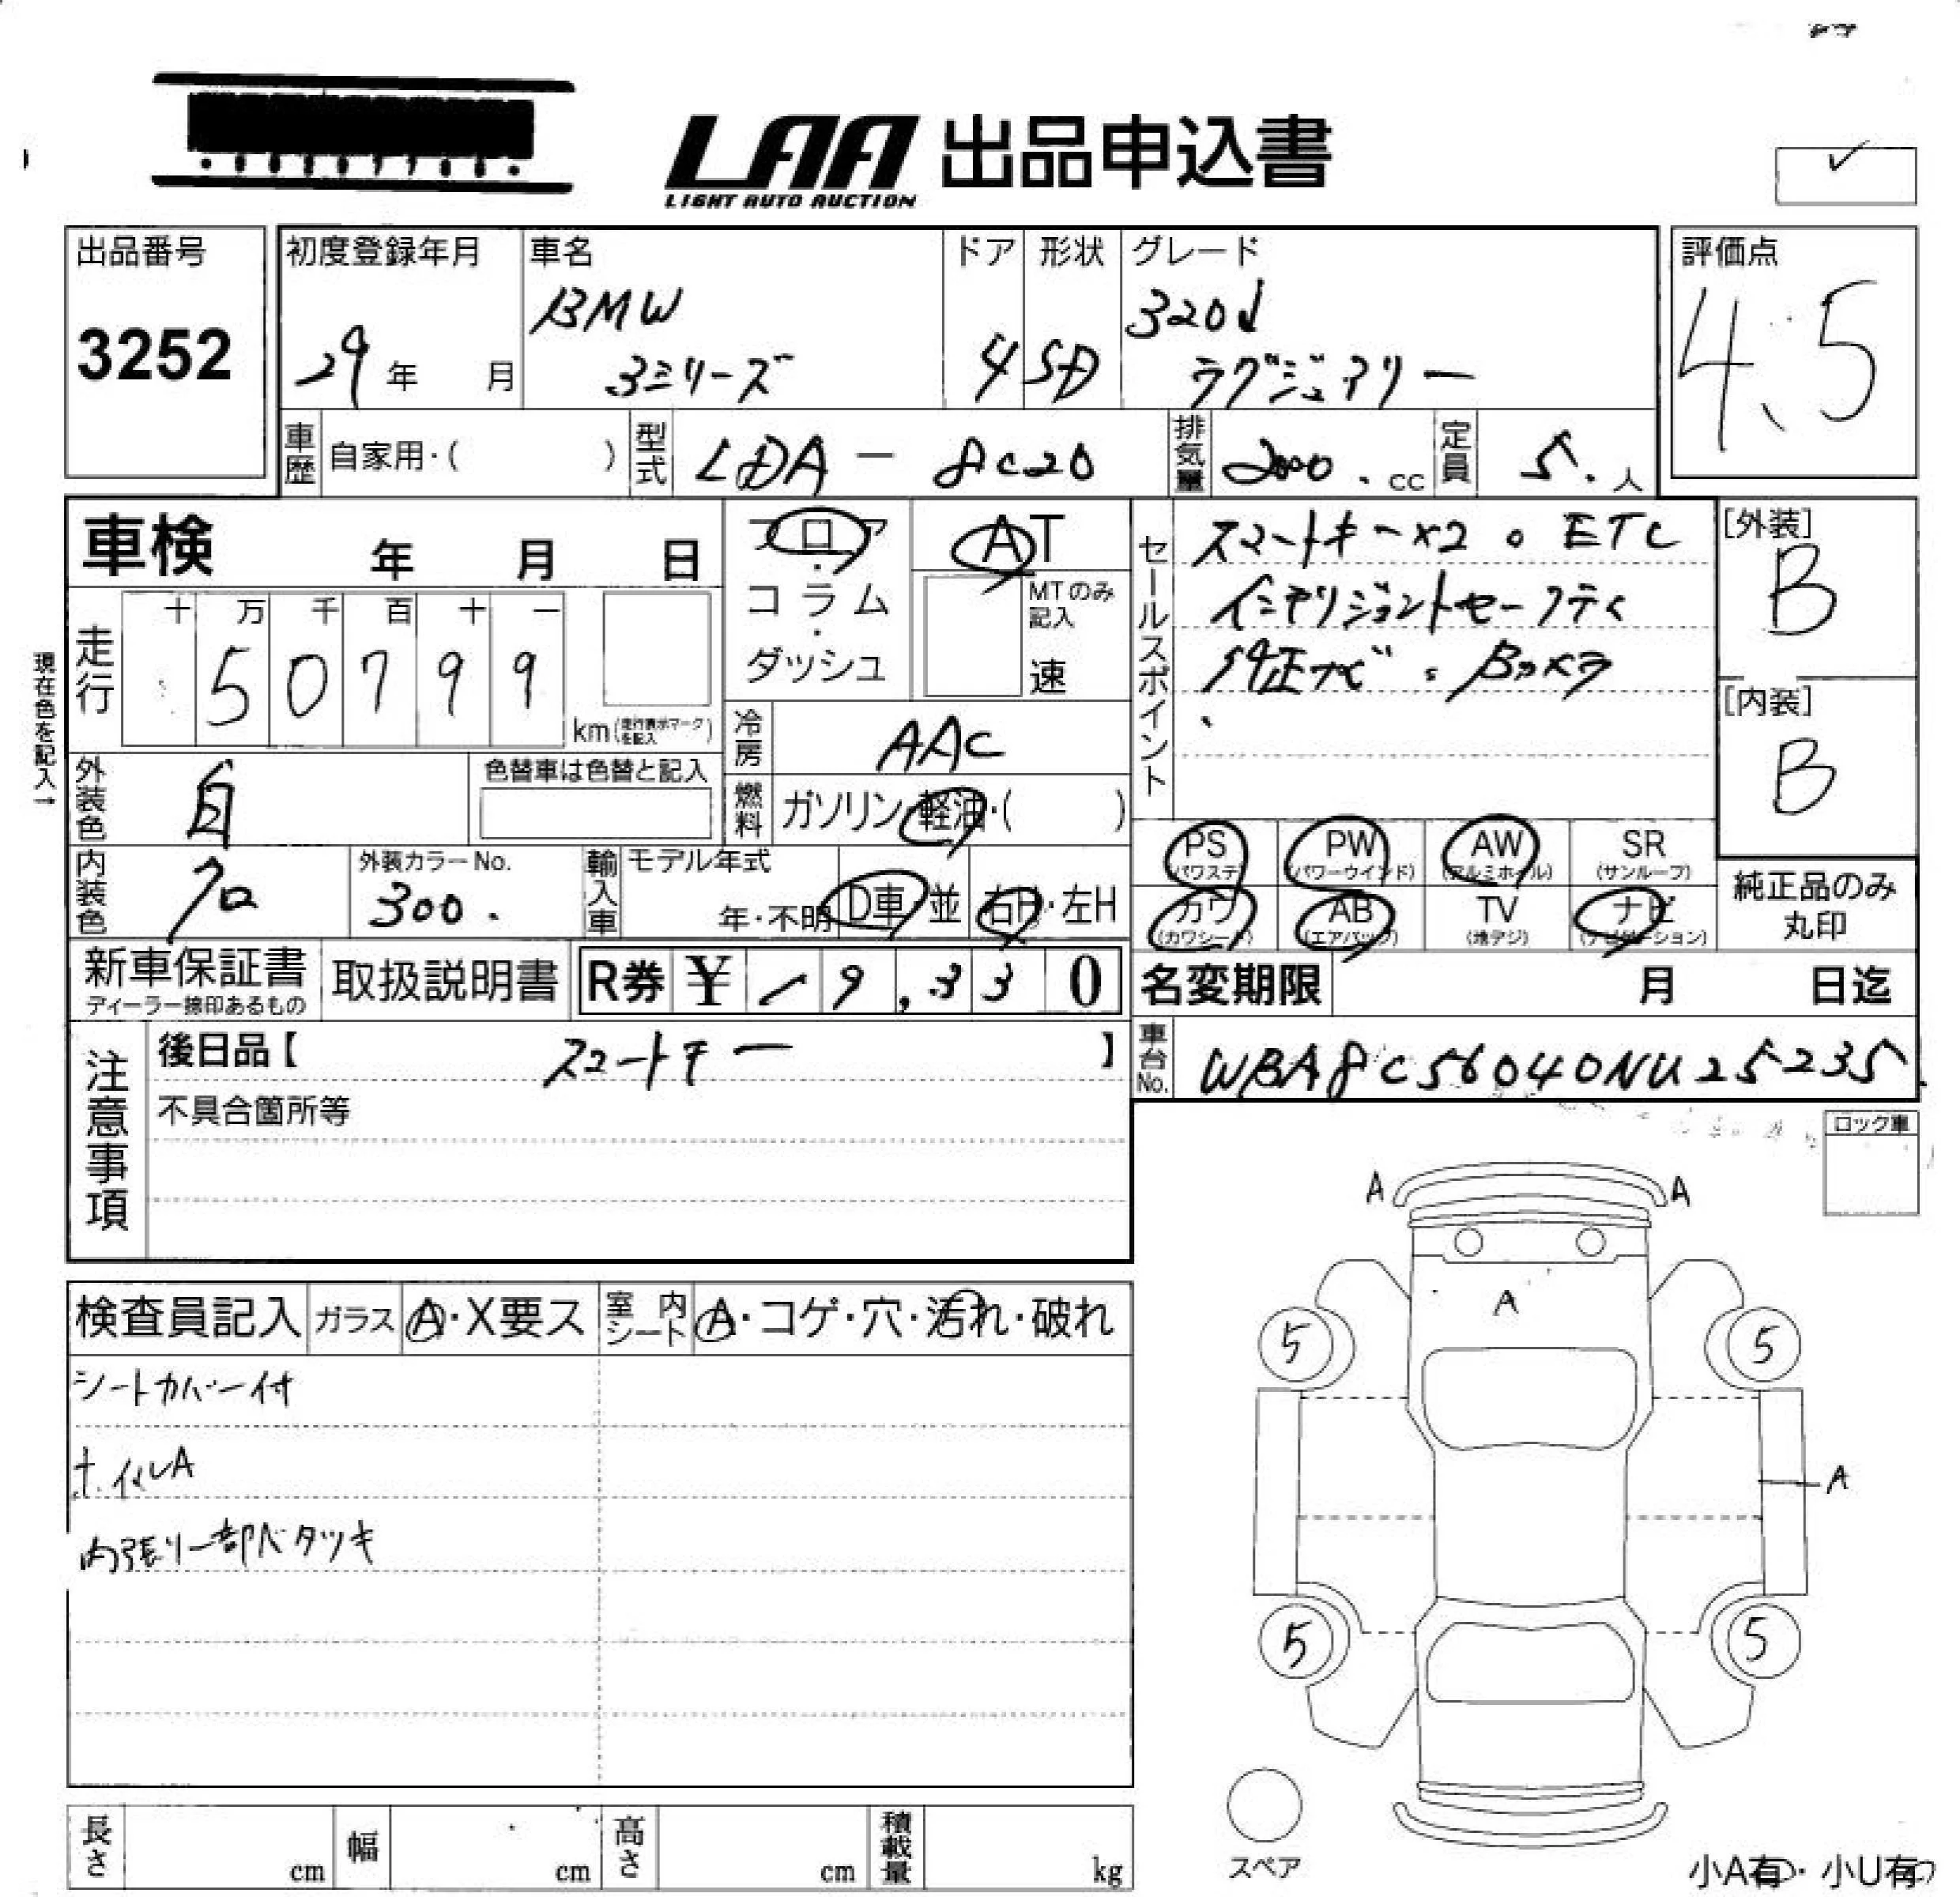 LAA 出品申込書
LIGHT AUTO AUCTION
出品番号
3252
初度登録年月
29年 月
車名
BMW
3シリーズ
ドア
4
形状
SD
グレード
320d
ラグジュアリー
評価点
4.5
車歴 自家用・( )
型式 LDA - 8C20
排気量 2000.cc
定員 5.人
車検 年 月 日
フロア・コラム・ダッシュ
AT
MTのみ記入
速
セールスポイント
スマートキー×2 。ETC
インテリジェントセーフティ
純正ナビ 。Bカメラ
[外装]
B
[内装]
B
現在色を記入→
走行
十 万 千 百 十 一
5 0 7 9 9
km(走行表示マークを記入)
冷房 AAC
外装色 白
色替車は色替と記入
燃料 ガソリン・軽油・( )
内装色 クロ
外装カラーNo.
300.
輸入車 モデル年式
年・不明 D車・並 右H・左H
PS (パワステ)
PW (パワーウインド)
AW (アルミホイル)
SR (サンルーフ)
カワ (カワシート)
AB (エアバック)
TV (地デジ)
ナビ (ナビゲーション)
純正品のみ
丸印
新車保証書
ディーラー捺印あるもの
取扱説明書
R券 ¥ 19,330
名変期限 月 日迄
注意事項
後日品【 スマートキー 】
不具合箇所等
車台No. WBA8C56040NU25235
ロック車
検査員記入 ガラス A・X要ス 室内シート A・コゲ・穴・汚れ・破れ
シートカバー付
ホイルA
内張り一部ベタツキ
A A
A
5 5
A
5 5
スペア
小A有・小U有
長さ cm 幅 cm 高さ cm 積載量 kg